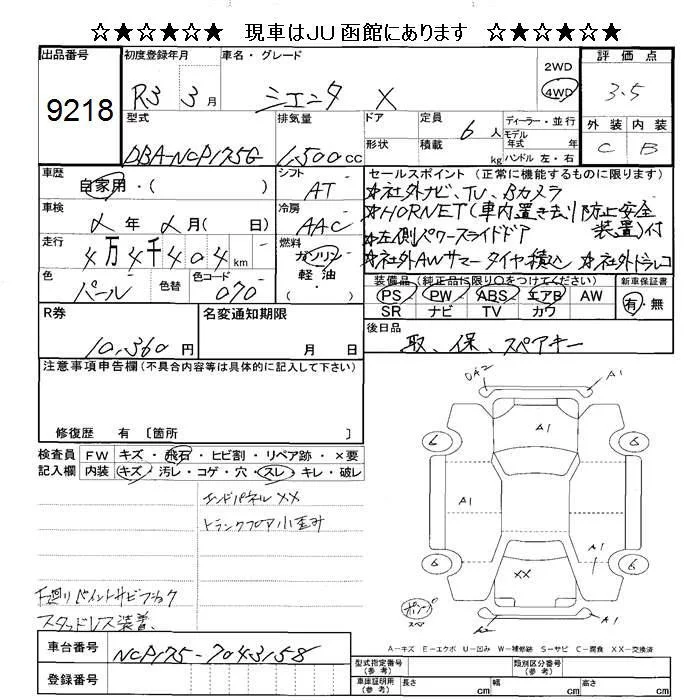 ☆★☆★☆★　現車はJU函館にあります　☆★☆★☆★
出品番号 初度登録年月 車名・グレード 2WD 評価点
9218 R3 3月 シエンタ X 4WD 3.5
型式 排気量 ドア 定員 6人 ディーラー・並行 外装 内装
DBA-NCP175G 1,500cc 形状 積載 kg モデル年式 年 ハンドル 左・右 C B
車歴 シフト セールスポイント (正常に機能するものに限ります)
自家用・( ) AT ☆社外ナビ、TV、Bカメラ
車検 冷房 ☆HORNET(車内置き去り防止安全
メ年 メ月( 日) AAC 装置)付
走行 燃料 ☆左側パワースライドドア
4万4千404km ガソリン 軽油・( ) ☆社外AWサマータイヤ積込 ☆社外ドラレコ
色 色替 色コード 装備品(純正品に限り○をつけてください) 新車保証書
パール 070 PS PW ABS エアB AW 有・無
R券 名変通知期限 SR ナビ TV カワ
10,360円 月 日 後日品
取、保、スペアキー
注意事項申告欄(不具合内容等は具体的に記入して下さい)
修復歴 有 〔箇所 〕
検査員 FW キズ・飛石・ヒビ割・リペア跡・×要
記入欄 内装 キズ・汚レ・コゲ・穴・スレ・キレ・破レ
エンドパネルXX
トランクフロア小歪み
下廻りペイントサビブラック
スタッドレス装着
A2 A1
A1
6 6
A1 A1
6 6
XX A1
スペア
A－キズ E－エクボ U－凹み W－補修跡 S－サビ C－腐食 XX－交換済
車台番号 NCP175-7043158
登録番号
型式指定番号(参考) 類別区分番号(参考)
車庫証明用(参考) 長さ cm 幅 cm 高さ cm